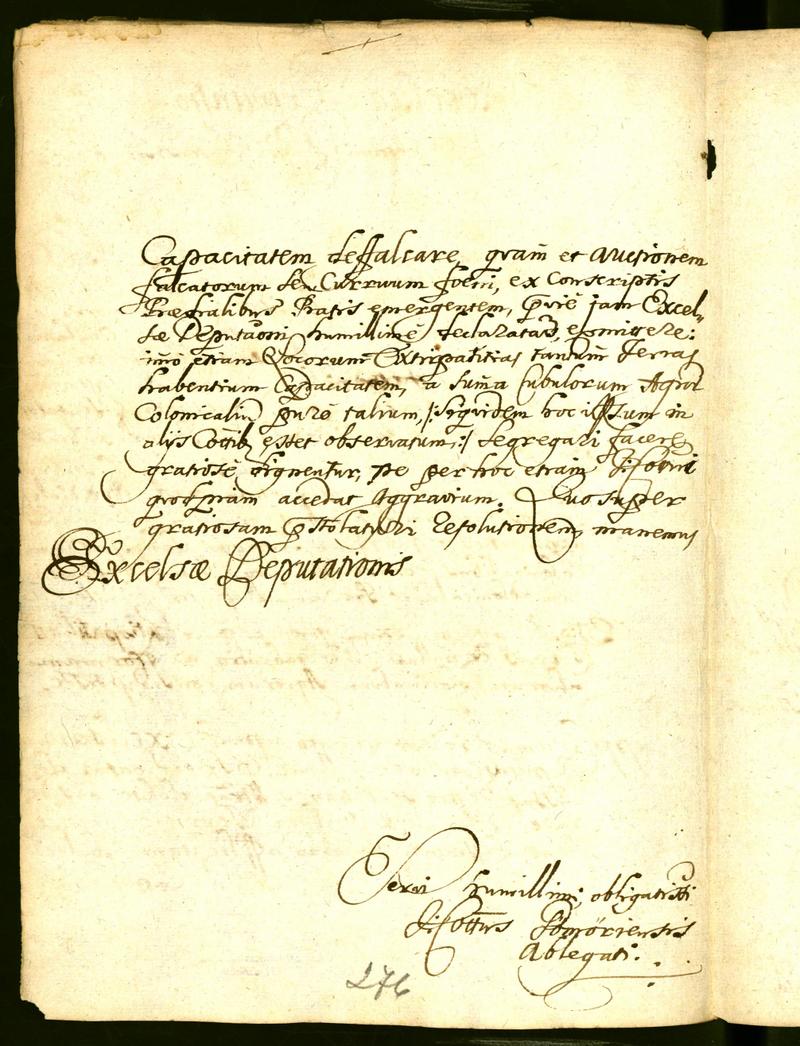 Capacitatem deffalcare, quam et Auctionem
falcatorum seu Curruum foeni, ex Conscriptis
Praefialibus Pratis emergentem, pvie jam Excel„
sae Deputaoni humillime declaratam, epmigere:
imo etiam Extirpatitias tantum Terras
habentium Capacitatem, a suma Cubulorum Agror
Colonicaliu pure talium, /:siqvidem hoc ipsum in
alijs Cottib esset observatum,:/ Segregari facere
gratiose dignentur, ne per hoc etiam
qvodpiam accedat Aggravium. Qvosuper
gratiosam pstolaturi Resolutionem, manemus
Excelsae Deputationis
Servi humillimi, obligatissimi
I: Cottus Gömöriensis
Ablegati.
276